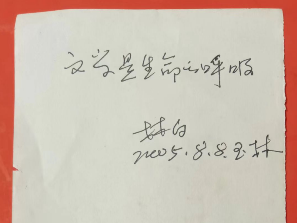 文学是生命的呼吸
林白
2005.8.8.玉林